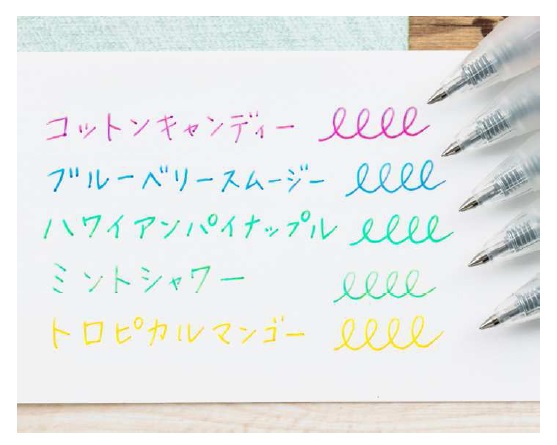 コットンキャンディー
ブルーベリースムージー
ハワイアンパイナップル
ミントシャワー
トロピカルマンゴー